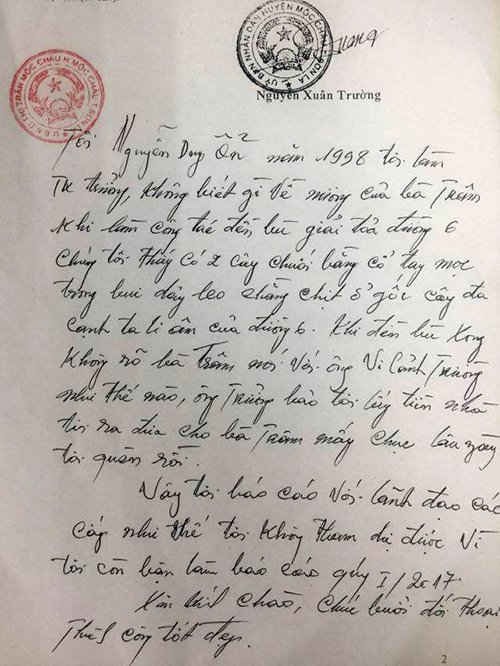 THỊ TRẤN MỘC CHÂU H MỘC CHÂU
ỦY BAN NHÂN DÂN HUYỆN MỘC CHÂU SƠN LA
Nguyễn Xuân Trường
Tôi Nguyễn Duy Ổn năm 1998 tôi làm
TK trưởng, không biết gì về mương của bà Trâm
khi làm công tác đền bù giải toả đường 6
chúng tôi thấy có 2 cây chuối bằng cổ tay mọc
trong bụi dây leo chằng chịt ở gốc cây đa
cạnh ta li âm của đường 6. Khi đền bù xong
không rõ bà Trâm nói với ông Vi Cảnh Trường
như thế nào, ông Trưởng bảo tôi lấy tiền nhà
tôi ra đưa cho bà Trâm mấy chục
tôi quên rồi.
Vậy tôi báo cáo với lãnh đạo các
cấp như thế tôi không tham dự được vì
tôi còn bận làm báo cáo quý I/2017
Xin kính chào, chúc buổi đối thoại
thành công tốt đẹp.
2